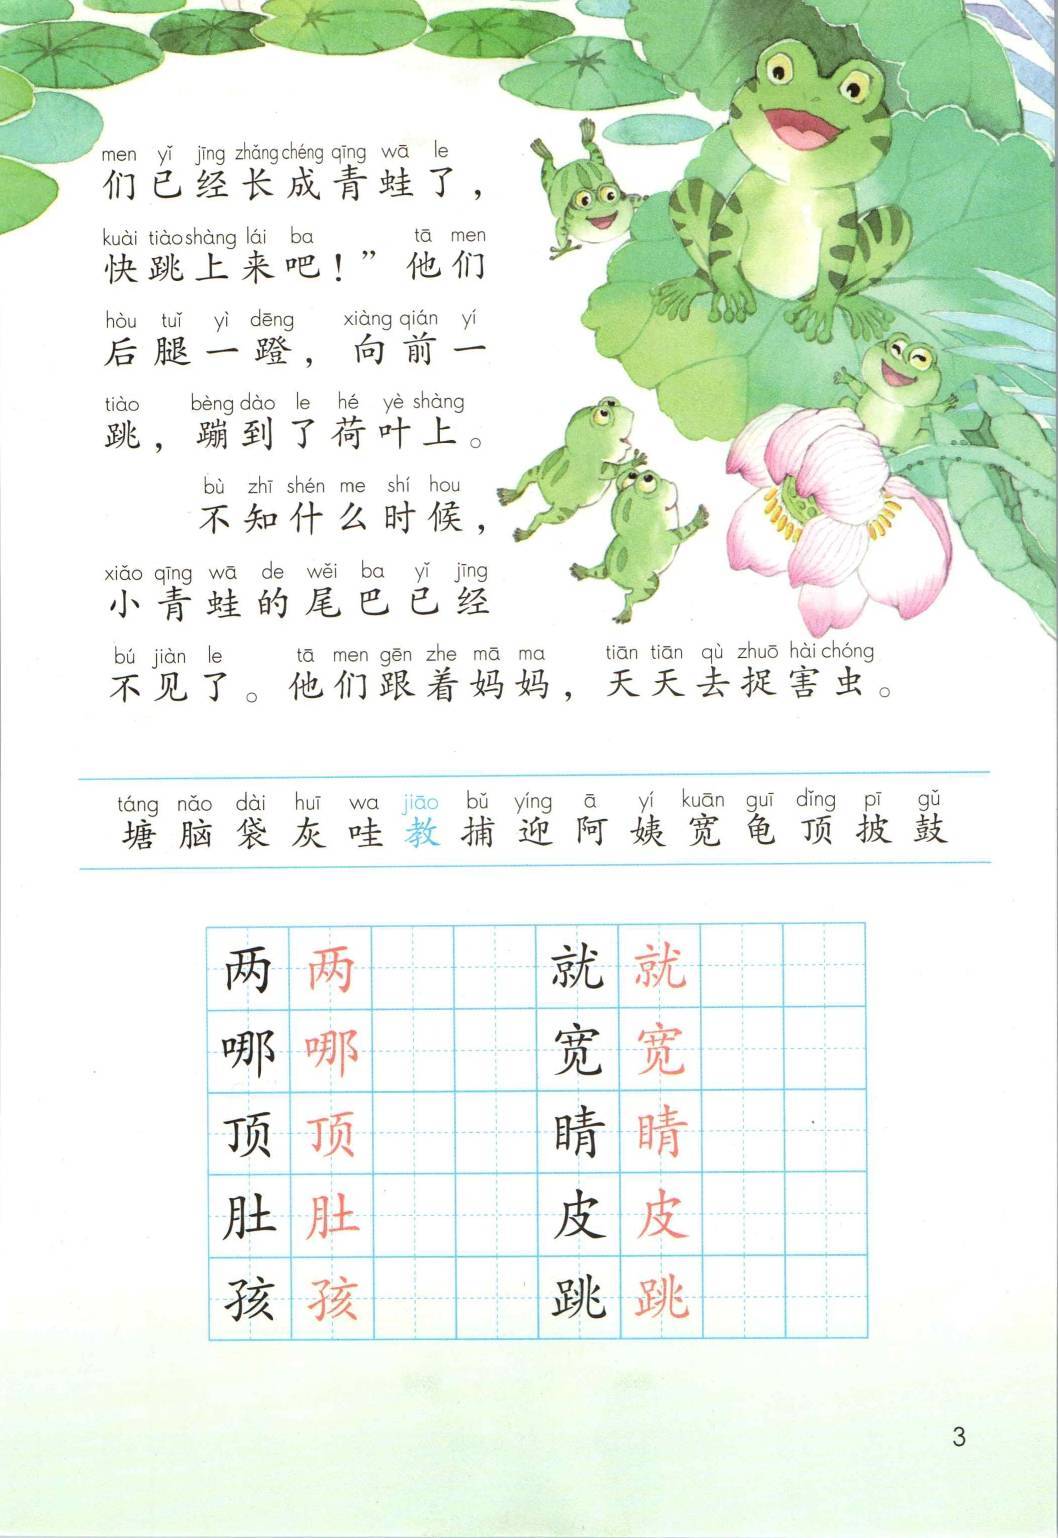 men yǐ jīng zhǎng chéng qīng wā le
们已经长成青蛙了，
kuài tiào shàng lái ba tā men
快跳上来吧！”他们
hòu tuǐ yì dēng xiàng qián yí
后腿一蹬，向前一
tiào bèng dào le hé yè shàng
跳，蹦到了荷叶上。
bù zhī shén me shí hou
不知什么时候，
xiǎo qīng wā de wěi ba yǐ jīng
小青蛙的尾巴已经
bú jiàn le tā men gēn zhe mā ma tiān tiān qù zhuō hài chóng
不见了。他们跟着妈妈，天天去捉害虫。
táng nǎo dài huī wa jiāo bǔ yíng ā yí kuān guī dǐng pī gǔ
塘脑袋灰哇教捕迎阿姨宽龟顶披鼓
两 两 就 就
哪 哪 宽 宽
顶 顶 睛 睛
肚 肚 皮 皮
孩 孩 跳 跳
3